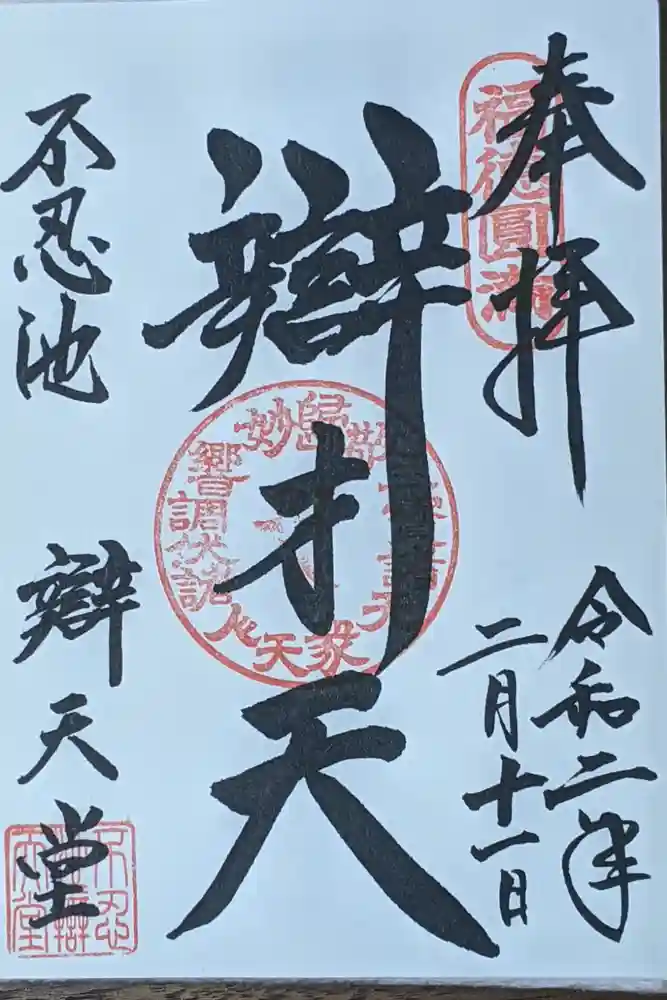 奉拝
福徳圓満
令和二年
二月十一日
辯才天
不忍池
辯天堂
不忍池辯天堂